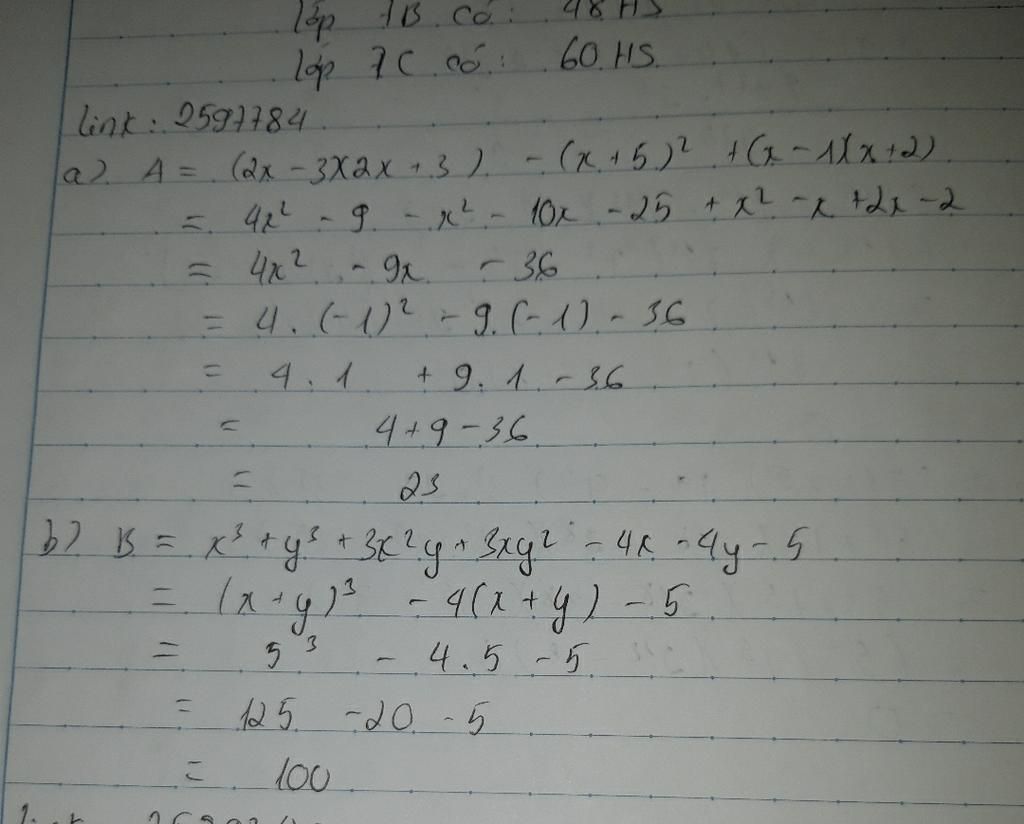 lớp 7B có: 48 HS
lớp 7C có: 60 HS
link: 2597784
a) A = (2x - 3)(2x + 3) - (x + 5)² + (x - 1)(x + 2)
= 4x² - 9 - x² - 10x - 25 + x² - x + 2x - 2
= 4x² - 9x - 36
= 4. (-1)² - 9. (-1) - 36
= 4. 1 + 9. 1 - 36
= 4 + 9 - 36
= 23
b) B = x³ + y³ + 3x²y + 3xy² - 4x - 4y - 5
= (x + y)³ - 4(x + y) - 5
= 5³ - 4. 5 - 5
= 125 - 20 - 5
= 100